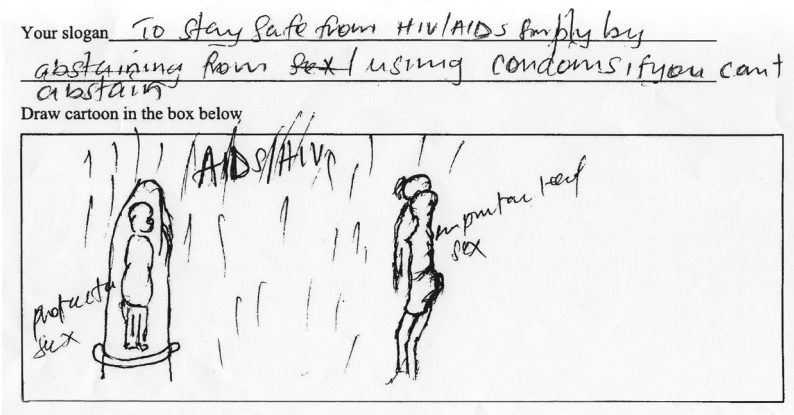 Your slogan To stay safe from HIV/AIDS simply by
abstaining from sex / using condoms if you can't
abstain
Draw cartoon in the box below
AIDS/HIV
sex
sex